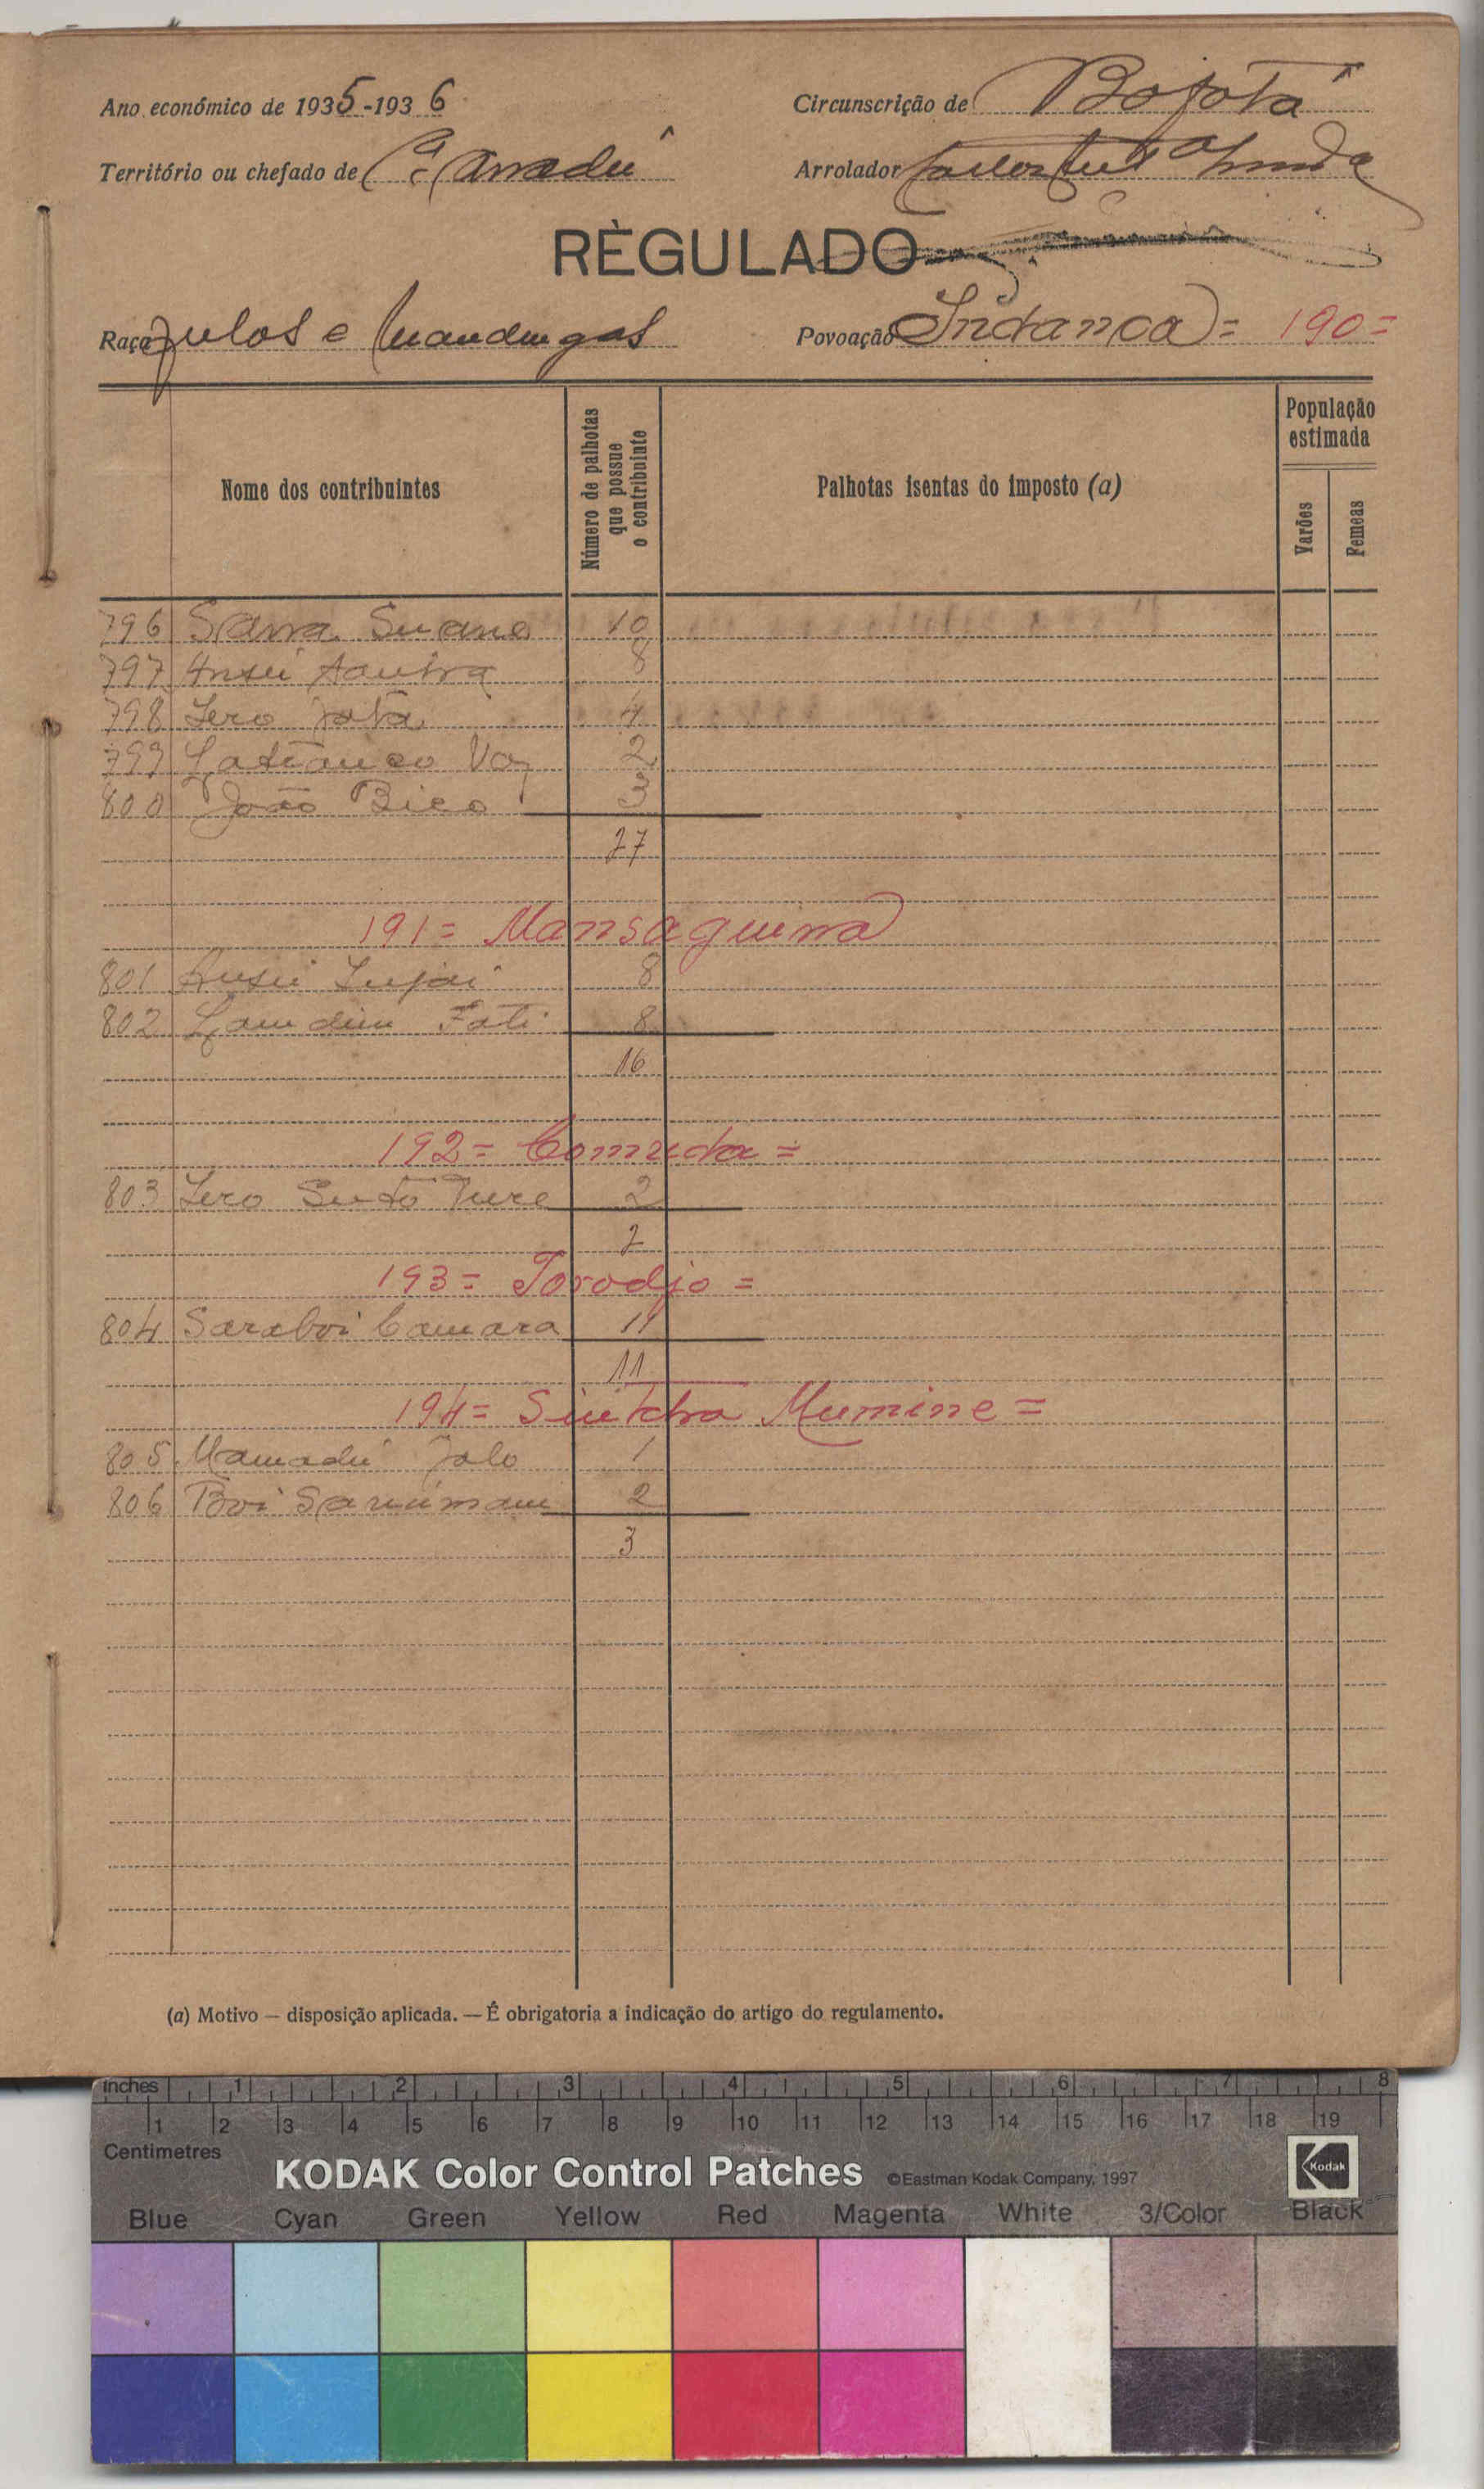 Ano económico de 1935-1936
Circunscrição de Bafatá
Território ou chefado de Canadú
Arrolador
RÈGULADO
Raça Fulas e Mandingas
Povoação Sintanca = 190=
Nome dos contribuintes
Número de palhotas que possue o contribuinte
Palhotas isentas do imposto (a)
População estimada
Varões
Femeas
796 Sana Suane 10
797 8
798 Lero 4
799 Vaz 2
800 João Bico 3
27
191= Mansaguima
801 8
802 Lamdim Fati 8
16
192= Comuda =
803 Lero Ture 2
2
193= Torodjo =
804 Saraboi Camara 11
11
194= Mumine =
805 Mamadú Jalo 1
806 Boi 2
3
(a) Motivo — disposição aplicada. — É obrigatoria a indicação do artigo do regulamento.
inches 1 2 3 4 5 6 7 8
1 2 3 4 5 6 7 8 9 10 11 12 13 14 15 16 17 18 19
Centimetres
KODAK Color Control Patches ©Eastman Kodak Company, 1997 Kodak
Blue Cyan Green Yellow Red Magenta White 3/Color Black